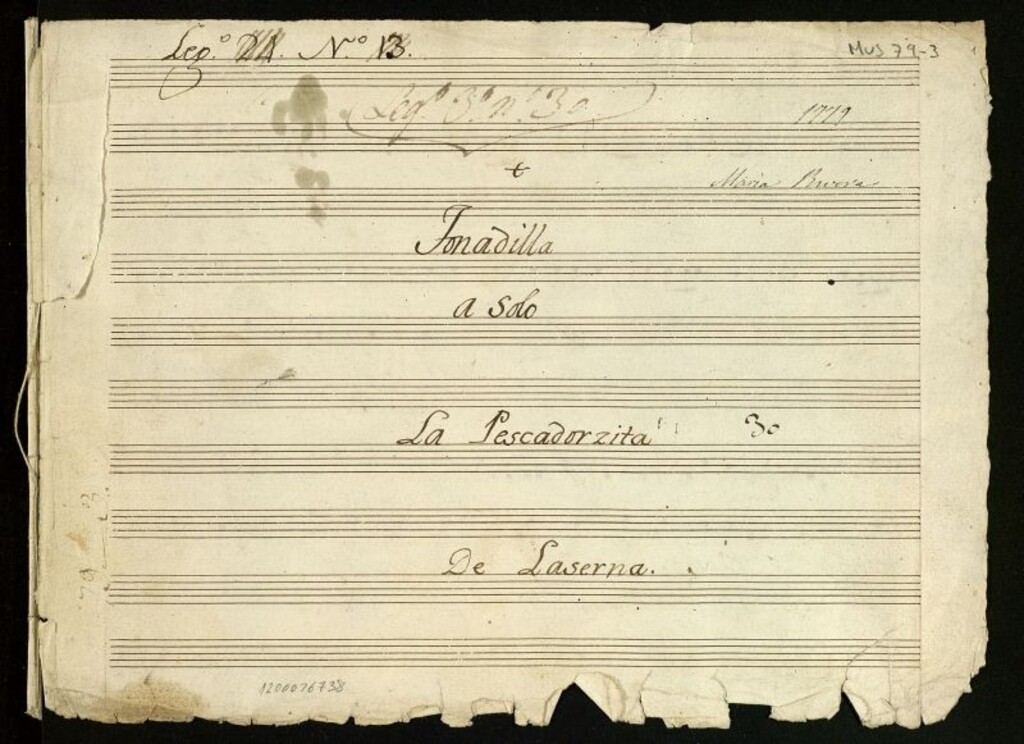 Leg.º N.º 13.
MUS 79-3
Leg.º 3.º n.º 30.
Maria
Tonadilla
a Solo
La Pescadorzita
30
De Laserna.
79-3
1200076738